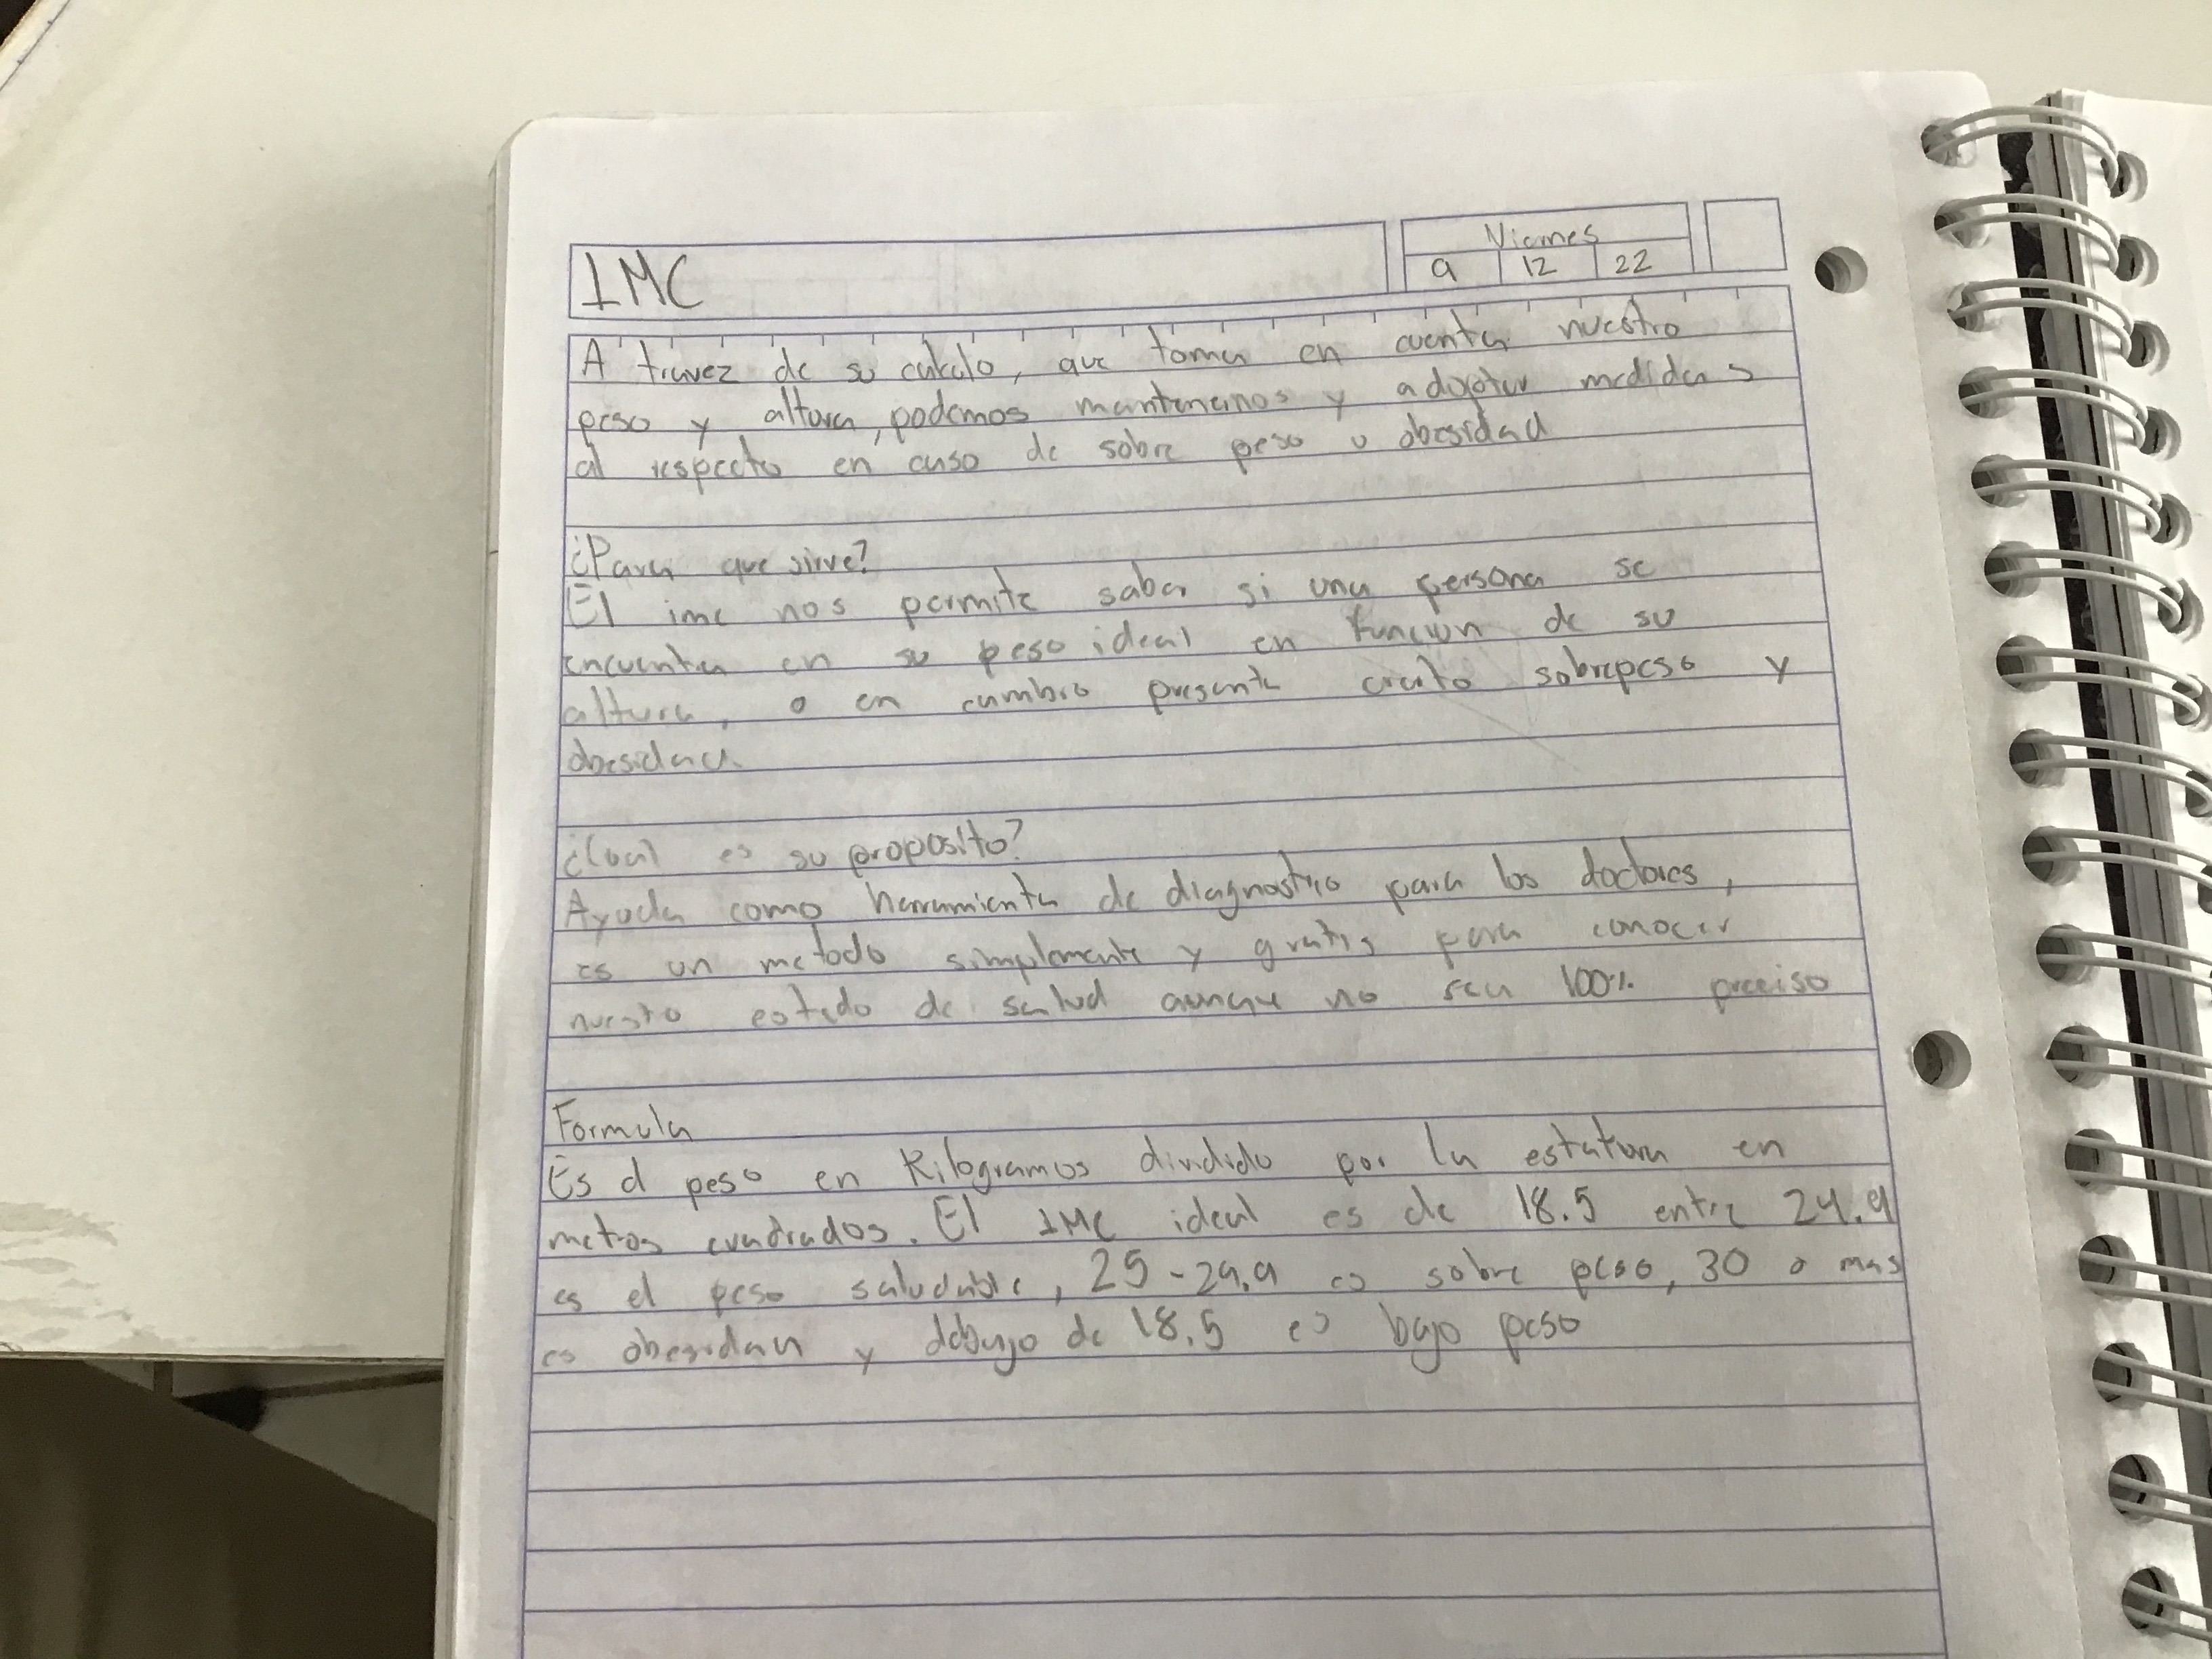 IMC
Viernes
9 12 22
A travez de su calculo, que toma en cuenta nuestro
peso y altura, podemos mantenernos y adoptar medidas
al respecto en caso de sobre peso u obesidad
¿Para que sirve?
El imc nos permite saber si una persona se
encuentra en su peso ideal en funcion de su
altura, o en cambio presenta cierto sobrepeso y
obesidad.
¿Cual es su proposito?
Ayuda como herramienta de diagnostico para los doctores,
es un metodo simplemente y gratis para conocer
nuestro estado de salud aunque no sea 100% preciso
Formula
Es el peso en Kilogramos dividido por la estatura en
metros cuadrados. El IMC ideal es de 18.5 entre 24.9
es el peso saludable, 25-29.9 es sobre peso, 30 o mas
es obesidad y debajo de 18.5 es bajo peso